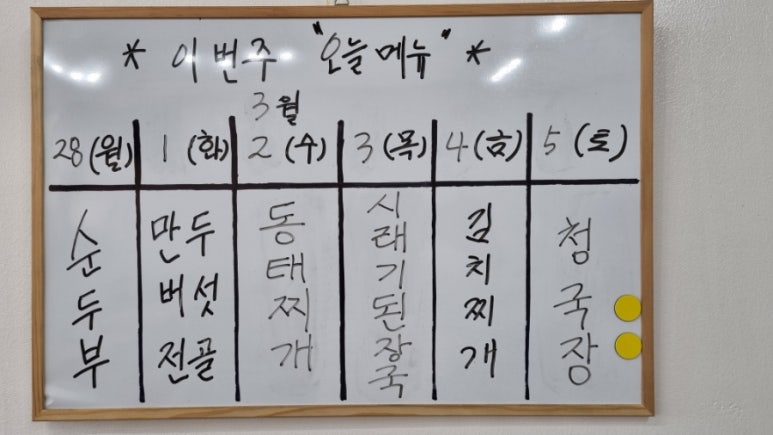 * 이번주 "오늘메뉴" *
3월
28(월) 1(화) 2(수) 3(목) 4(금) 5(토)
순두부
만두
버섯
전골
동태찌개
시래기된장국
김치찌개
청국장